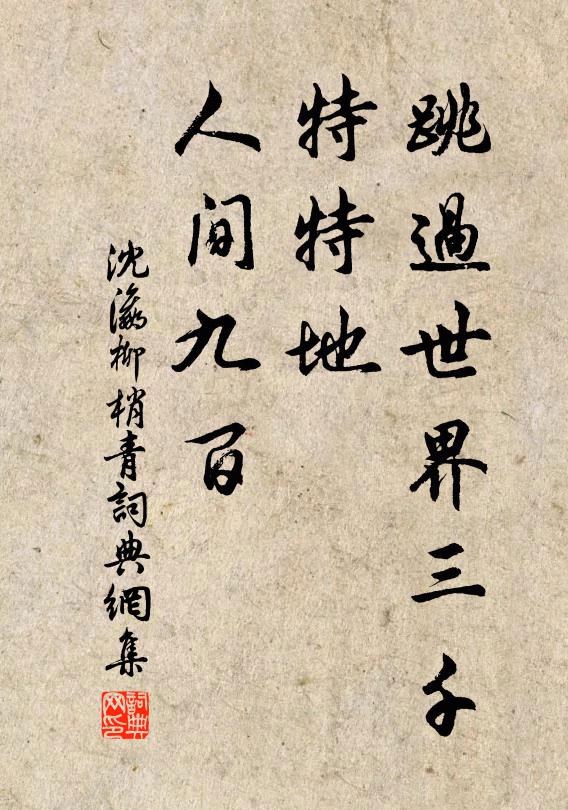 跳過世界三千
特特地
人間九百
沈瀛柳梢青詞典網集
詞典
网印